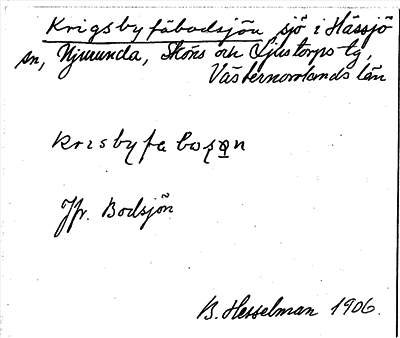 Krigsbyfäbodsjön sjö i Hässjö
sn, Njurunda, Sköns och Ljustorps tg,
Västernorrlands län
Jfr. Bodsjön
B. Hesselman 1906.